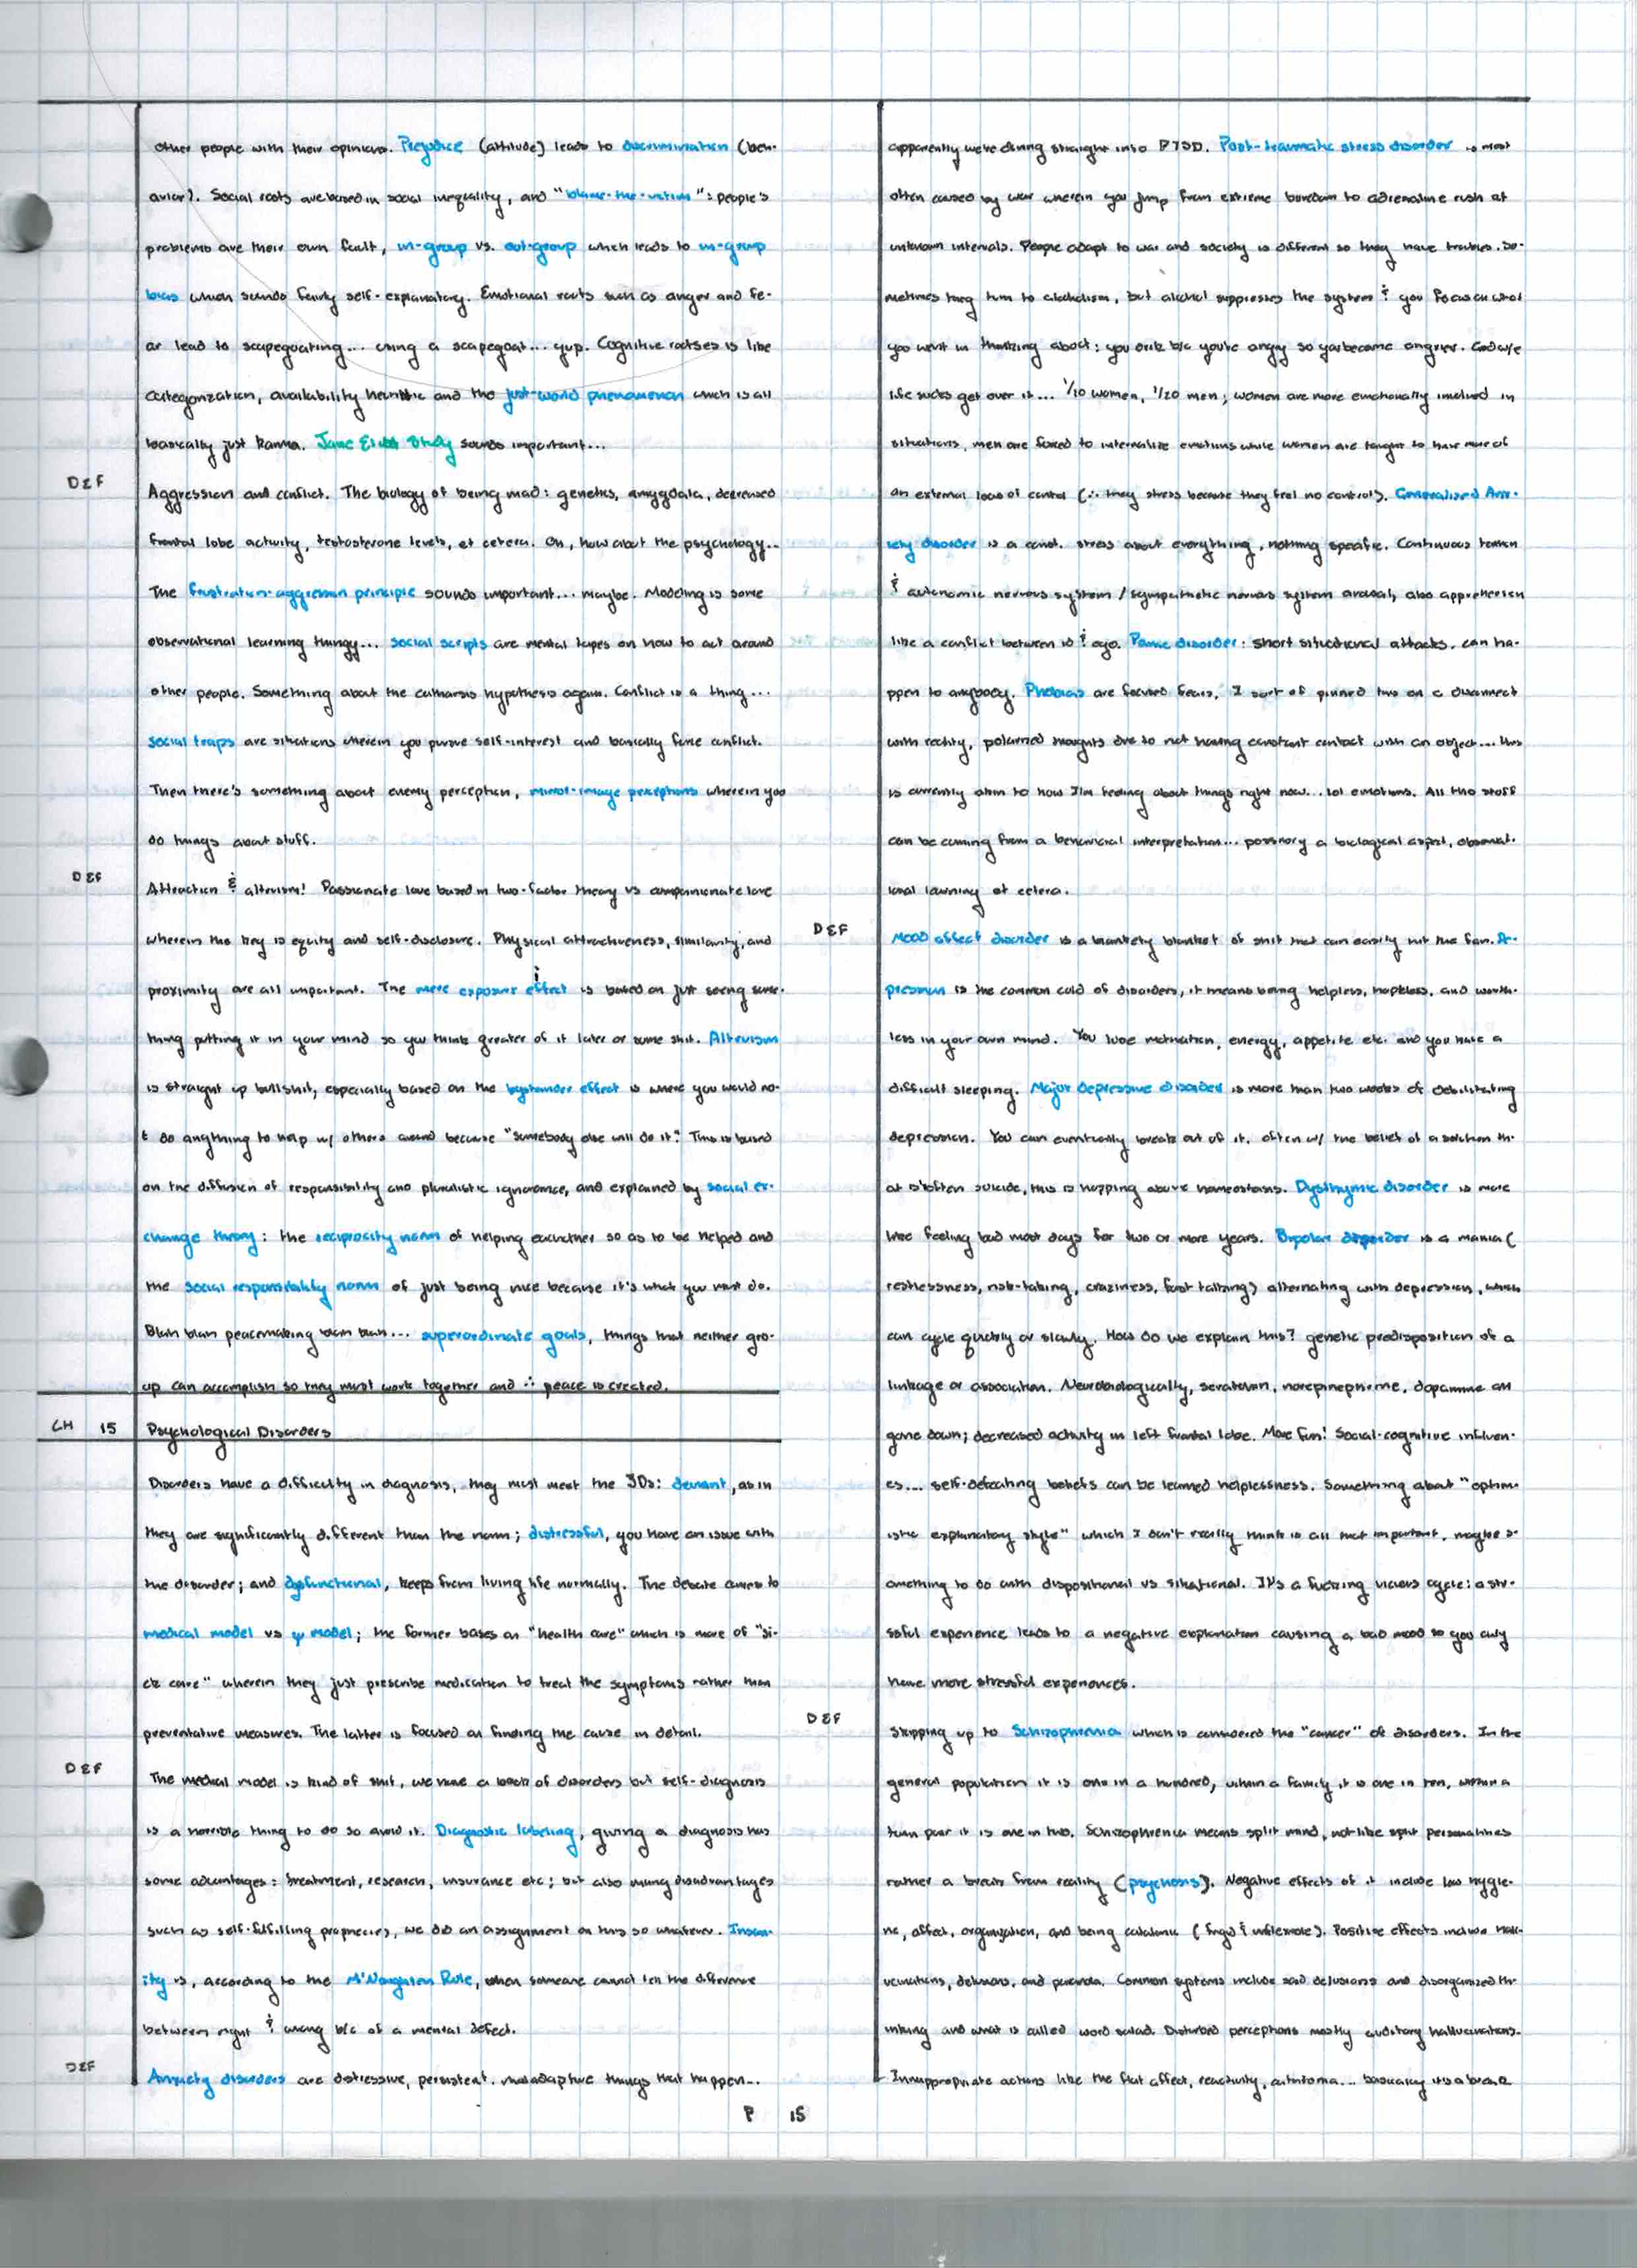 other people with their opinions. Prejudice (attitude) leads to discrimination (beh-
avior). Social roots are based in social inequality, and "blame-the-victim": people's
problems are their own fault, in-group vs. out-group which leads to in-group
bias which sounds fairly self-explanatory. Emotional roots such as anger and fe-
ar lead to scapegoating... using a scapegoat... yup. Cognitive rootses is like
categorization, availability heuristic and the just-world phenomenon which is all
basically just karma. Jane Elliot Study sounds important...
DEF
Aggression and conflict. The biology of being mad: genetics, amygdala, decreased
frontal lobe activity, testosterone levels, et cetera. Oh, how about the psychology..
The frustration-aggression principle sounds important... maybe. Modeling is some
observational learning thingy... social scripts are mental tapes on how to act around
other people. Something about the catharsis hypothesis again. Conflict is a thing...
social traps are situations wherein you pursue self-interest and basically force conflict.
Then there's something about enemy perception, mirror-image perceptions wherein you
do things about stuff.
DEF
Attraction & altruism! Passionate love based in two-factor theory vs companionate love
wherein the key is equity and self-disclosure. Physical attractiveness, similarity, and
proximity are all important. The mere exposure effect is based on just seeing some-
thing putting it in your mind so you think greater of it later or some shit. Altruism
is straight up bullshit, especially based on the bystander effect is where you would no-
t do anything to help w/ others around because "somebody else will do it". This is based
on the diffusion of responsibility and pluralistic ignorance, and explained by social ex-
change theory: the reciprocity norm of helping eachother so as to be helped and
the social responsibility norm of just being nice because it's what you must do.
Blah blah peacemaking blah blah... superordinate goals, things that neither gro-
up can accomplish so they must work together and ∴ peace is created.
CH 15 Psychological Disorders
Disorders have a difficulty in diagnosis, they must meet the 3Ds: deviant, as in
they are significantly different than the norm; distressful, you have an issue with
the disorder; and dysfunctional, keeps from living life normally. The debate comes to
medical model vs ψ model; the former bases on "health care" which is more of "si-
ck care" wherein they just prescribe medication to treat the symptoms rather than
preventative measures. The latter is focused on finding the cause in detail.
DEF
The medical model is kind of shit, we have a book of disorders but self-diagnosis
is a horrible thing to do so avoid it. Diagnostic labeling, giving a diagnosis has
some advantages: treatment, research, insurance etc; but also many disadvantages
such as self-fulfilling prophecies, we did an assignment on this so whatever. Insan-
ity is, according to the M'Naughten Rule, when someone cannot tell the difference
between right & wrong b/c of a mental defect.
DEF
Anxiety disorders are distressive, persistent, maladaptive things that happen...
apparently we're diving straight into PTSD. Post-traumatic stress disorder is most
often caused by war wherein you jump from extreme boredom to adrenaline rush at
unknown intervals. People adapt to war and society is different so they have troubles. So-
metimes they turn to alcoholism, but alcohol suppresses the system & you focus on what
you went in thinking about: you drink b/c you're angry so you become angrier.
life sucks get over it... 1/10 women, 1/20 men; women are more emotionally involved in
situations, men are forced to internalize emotions while women are taught to have more of
an external locus of control (∴ they stress because they feel no control). Generalized Anx-
iety disorder is a const. stress about everything, nothing specific. Continuous tension
& autonomic nervous system / sympathetic nervous system arousal, also apprehension
like a conflict between id & ego. Panic disorder: short situational attacks, can ha-
ppen to anybody. Phobias are focused fears, I sort of pinned this on a disconnect
with reality, polarized thoughts due to not having constant contact with an object... this
is currently akin to how I'm feeling about things right now... lol emotions. All this stuff
can be coming from a behavioral interpretation... possibly a biological aspect, observat-
ional learning et cetera.
DEF
Mood affect disorder is a blankety blanket of shit that can easily hit the fan. De-
pression is the common cold of disorders, it means being helpless, hopeless, and worth-
less in your own mind. You lose motivation, energy, appetite etc. and you have a
difficult sleeping. Major depressive disorder is more than two weeks of debilitating
depression. You can eventually break out of it, often w/ the belief of a solution th-
at is often suicide, this is hopping above homeostasis. Dysthymic disorder is more
like feeling bad most days for two or more years. Bipolar disorder is a mania (
restlessness, risk-taking, craziness, fast talking) alternating with depression, which
can cycle quickly or slowly. How do we explain this? genetic predisposition of a
linkage or association. Neurobiologically, seratonin, norepinephrine, dopamine all
gone down; decreased activity in left frontal lobe. More fun! Social-cognitive influen-
es... self-defeating beliefs can be learned helplessness. Something about "optim-
istic explanatory style" which I don't really think is all that important, maybe s-
omething to do with dispositional vs situational. It's a fucking vicious cycle: a str-
ssful experience leads to a negative explanation causing a bad mood so you only
have more stressful experiences.
DEF
Skipping up to Schizophrenia which is considered the "cancer" of disorders. In the
general population it is one in a hundred, within a family it is one in ten, within a
twin pair it is one in two. Schizophrenia means split mind, not like split personalities
rather a break from reality (psychosis). Negative effects of it include low hygie-
ne, affect, organization, and being catatonic (frigid & inflexible). Positive effects include hall-
ucinations, delusions, and paranoia. Common symptoms include said delusions and disorganized th-
inking and what is called word salad. Disturbed perceptions mostly auditory hallucinations.
Innappropriate actions like the flat affect, reactivity, ... basically it's a brain
P 15